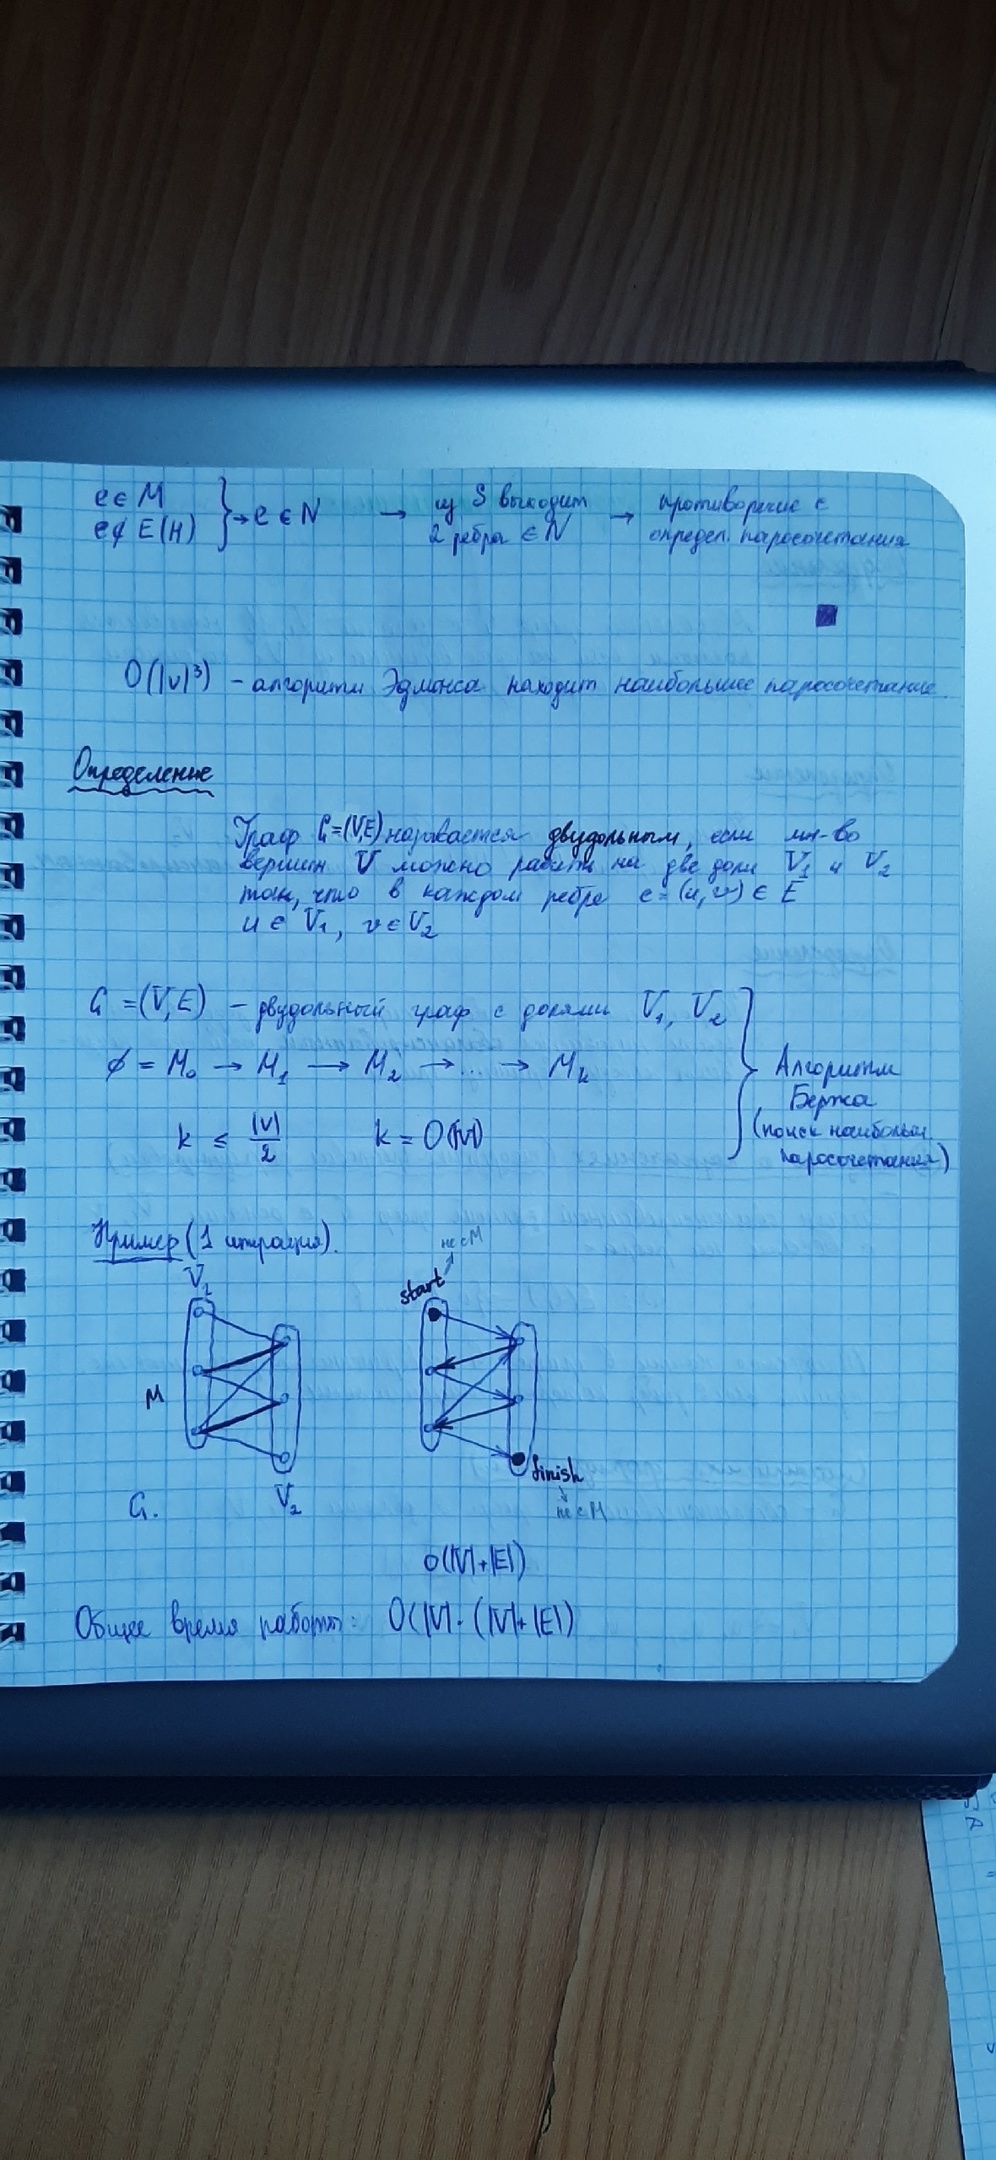 e ∈ M
e ∉ E(H) } → e ∈ N → из S выходит 2 ребра ∈ N → противоречие с определ. паросочетания
O(|V|³) – алгоритм Эдмонса находит наибольшее паросочетание
Определение
Граф G=(V,E) называется двудольным, если мн-во
вершин V можно разбить на две доли V₁ и V₂
так, что в каждом ребре e = (u,v) ∈ E
u ∈ V₁, v ∈ V₂
G = (V,E) – двудольный граф с долями V₁, V₂
∅ = M₀ → M₁ → M₂ → ... → Mₖ
k ≤ |V|/2 k = O(|V|)
} Алгоритм
Бержа
(поиск наибольш.
паросочетания)
Пример (1 итерация).
V₁
M
G.
V₂
не с M
start
finish
не с M
O(|V|+|E|)
Общее время работы: O(|V|·(|V|+|E|)